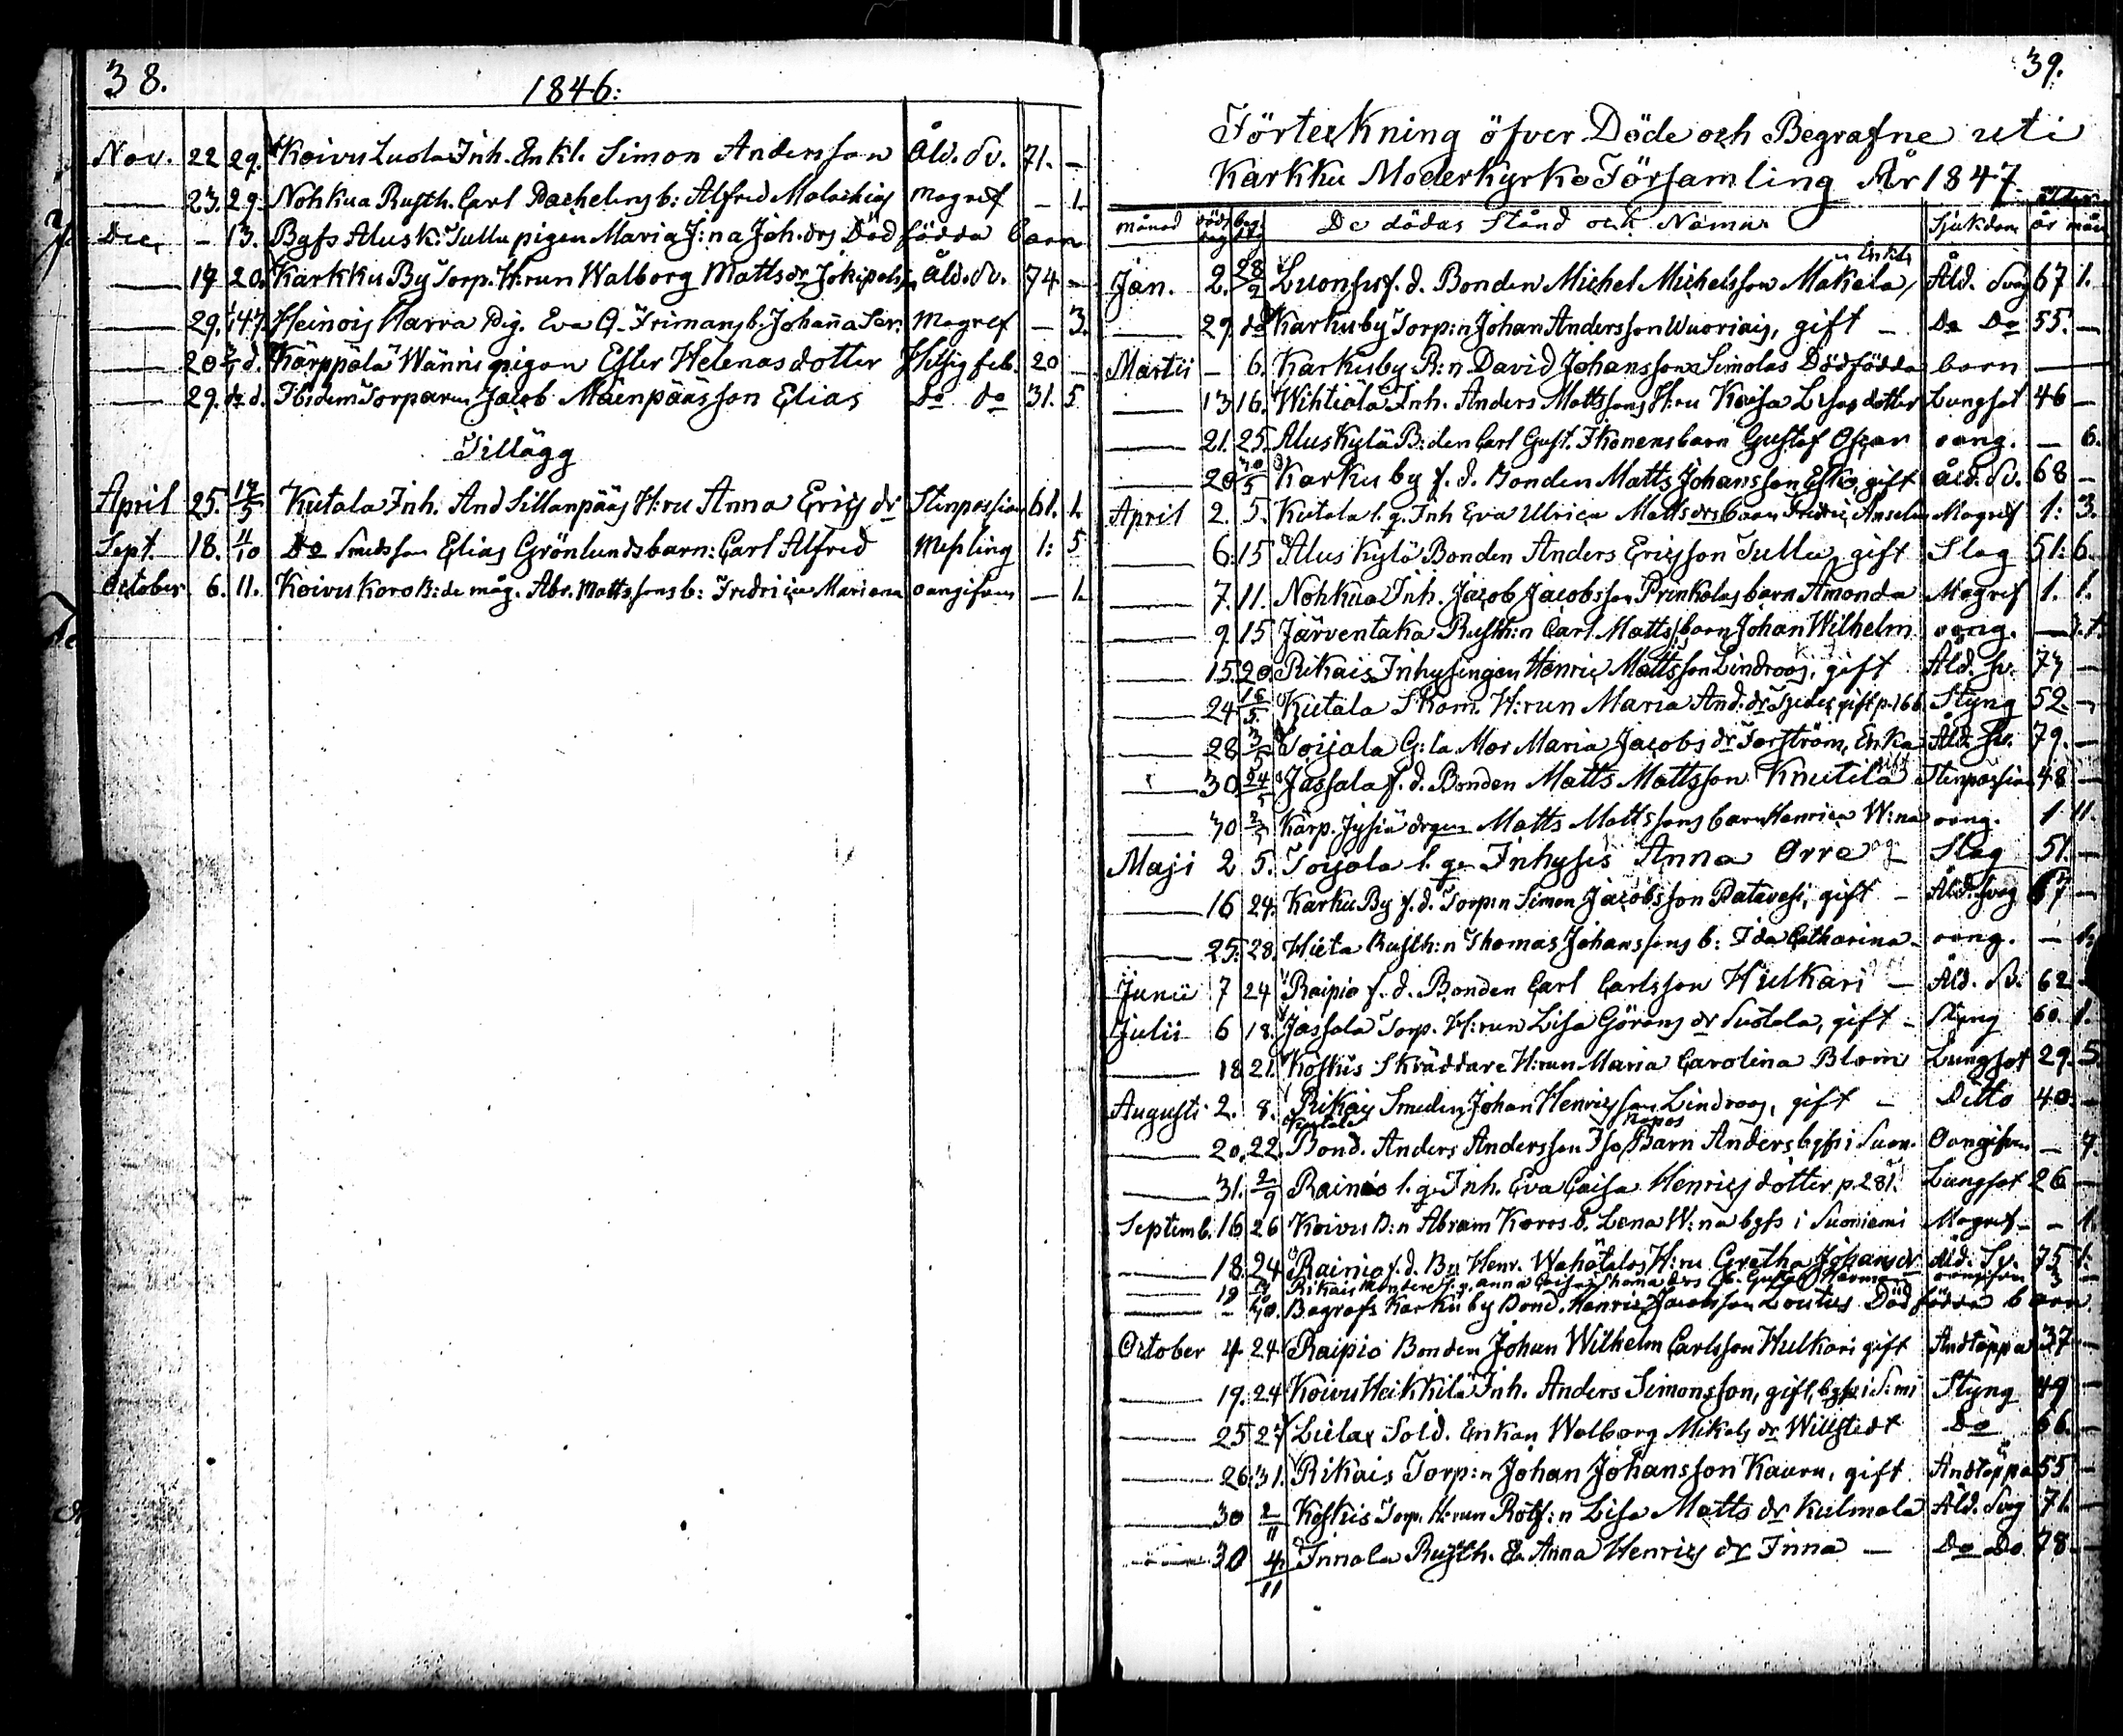 38.
1846:
Nov. 22 29. Koivu Luola Inh. Enkl. Simon Andersson Åld. Sv. 71. —
— 23. 29. Nohkua Rusth. Carl b: Alfred Malachias Magref — 1.
Dec. — 13. Bgfs Alusk: Tullu pigan Maria J:na Joh. drs Död födda barn
— 19 20. Karkku By Torp. H:run Walborg Matts dr Åld. Sv. 74. —
— 29. Heinois Marra Pig. Eva b. Johanna Magref — 3.
— 20 Kärppälä Wänni pigan Ester Helenas dotter Hitsig feb. 20 —
— 29. d. Ibidem Torparen Jacob Mäenpääs son Elias Do do 31. 5
Tillägg
April 25. 17/5 Kutala Inh. And Sillanpääs H:ru Anna Erics dr Stenpassion 61. 1.
Sept. 18. 4/10 Do Smedsson Elias Grönlunds barn: Carl Alfred Messling 1: 5
October 6. 11. Koivu Koro B:de måg. Abr. Mattssons b: Fredrica Mariana oangifven — 1.
39.
Förteckning öfver Döde och Begrafne uti
Karkku Moderkyrko Församling År 1847.
ålder
månad döds dag beg. dag De dödas Stånd och Namn Sjukdom år mån
Enkl.
Jan. 2. 28/2 Luonsu f. d. Bonden Michel Michelsson Makela, Åld. Svag 67 1.
— 29. do Karkuby Torp:n Johan Andersson Wuoriais, gift — Do Do 55. —
Martii — 6. Karkuby B:n David Johansson Simolas Dödfödda barn —
— 13 16. Wihtiälä Inh. Anders Mattssons H:ru Kaisa Lisas dotter Lungsot 46 —
— 21. 25. Aluskylä B:den Carl Gust. Ikonens barn Gustaf Oscar oang. — 6.
— 20 Karku by f. d. Bonden Matts Johansson Esko, gift åld. Sv. 68 —
April 2. 5. Kutala l. q. Inh Eva Ulrica Matts drs barn Fredric Anselm Magref 1: 3.
— 6. 15 Alus Kylä Bonden Anders Ericsson Tullu, gift Slag 51: 6.
— 7. 11. Nohkua Inh. Jacob Jacobsson Prinkalas barn Amanda Magref 1. 1.
— 9. 15 Järventaka Rusth:n Carl Matts barn Johan Wilhelm oang. —
— 15. 20. Rikais Inhysingen Henric Mattsson Lindroos, gift Åld. sv. 77 —
— 24 Kutala Skom. H:run Maria And. dr gift p. 166. Styng 52. —
— 28 3/5 Toijala G:la Mor Maria Jacobs dr Forström, Enka Åld. sv. 79. —
— 30 24/5 Jassala f. d. Bonden Matts Mattsson Knutila Stenpassion 48 —
— 30 Kärp. Jysiä drgen Matts Mattssons barn Henrica W:na oang. 1 11.
Maji 2 5. Toijala l. q. Inhyses Anna Orre Slag 51. —
— 16 24. Karku By f. d. Torp:n Simon Jacobsson Patavesi, gift — Åld. svag 67 —
— 25. 28. Hieta Rusth:n Thomas Johanssons b: Ida Catharina — oang. —
Junii 7 24 Raipio f. d. Bonden Carl Carlsson Hulkari — Åld. sv. 62 —
Julii 6 18. Jassala Torp. H:run Lisa Görans dr Suotala, gift — Styng 60. 1.
— 18 21. Koskis Skräddare H:run Maria Carolina Blom Lungsot 29. 5
Augusti 2. 8. Rikais Smeden Johan Henricsson Lindroos, gift — Ditto 40. —
Kutala
— 20. 22. Bond. Anders Andersson Iso Barn Anders bgfs i Suon. Oangifven — 7.
— 31. 2/9 Rainio l. q. Inh. Eva Caisa Henrics dotter p. 281. Lungsot 26 —
Septemb. 16 26 Koivu B:n Abram Koros b. Lena W:na bgfs i Suoniemi Magref — 1.
— 18. 24 Rainio f. d. Bn Henr. Wahätalos H:ru Gretha Johans dr åld. Sv. 75 1.
— 19 Rikais Anna Caisa Thomas drs b. Gustaf oangifven 3 —
— Begrafs Karku by Bond. Henric Jacobsson Död födda barn
October 4 24 Raipio Bonden Johan Wilhelm Carlsson Hulkari gift Andtäppa 37 —
— 19. 24 Koivu Heikkilä Inh. Anders Simonsson, gift, bgfs i S:mi Styng 49 —
— 25 27 Lielax Sold. Enkan Walborg Mikels dr Willstedt Do 66. —
— 26. 31. Rikais Torp:n Johan Johansson Kauru, gift Andtäppa 55 —
— 30 2/11 Koskis Torp. H:run Rotf:n Lisa Matts dr Kulmala Åld. Svag 71. —
— 30 4/11 Innala Rusth. E. Anna Henrics dr Inna — Do Do 78 —